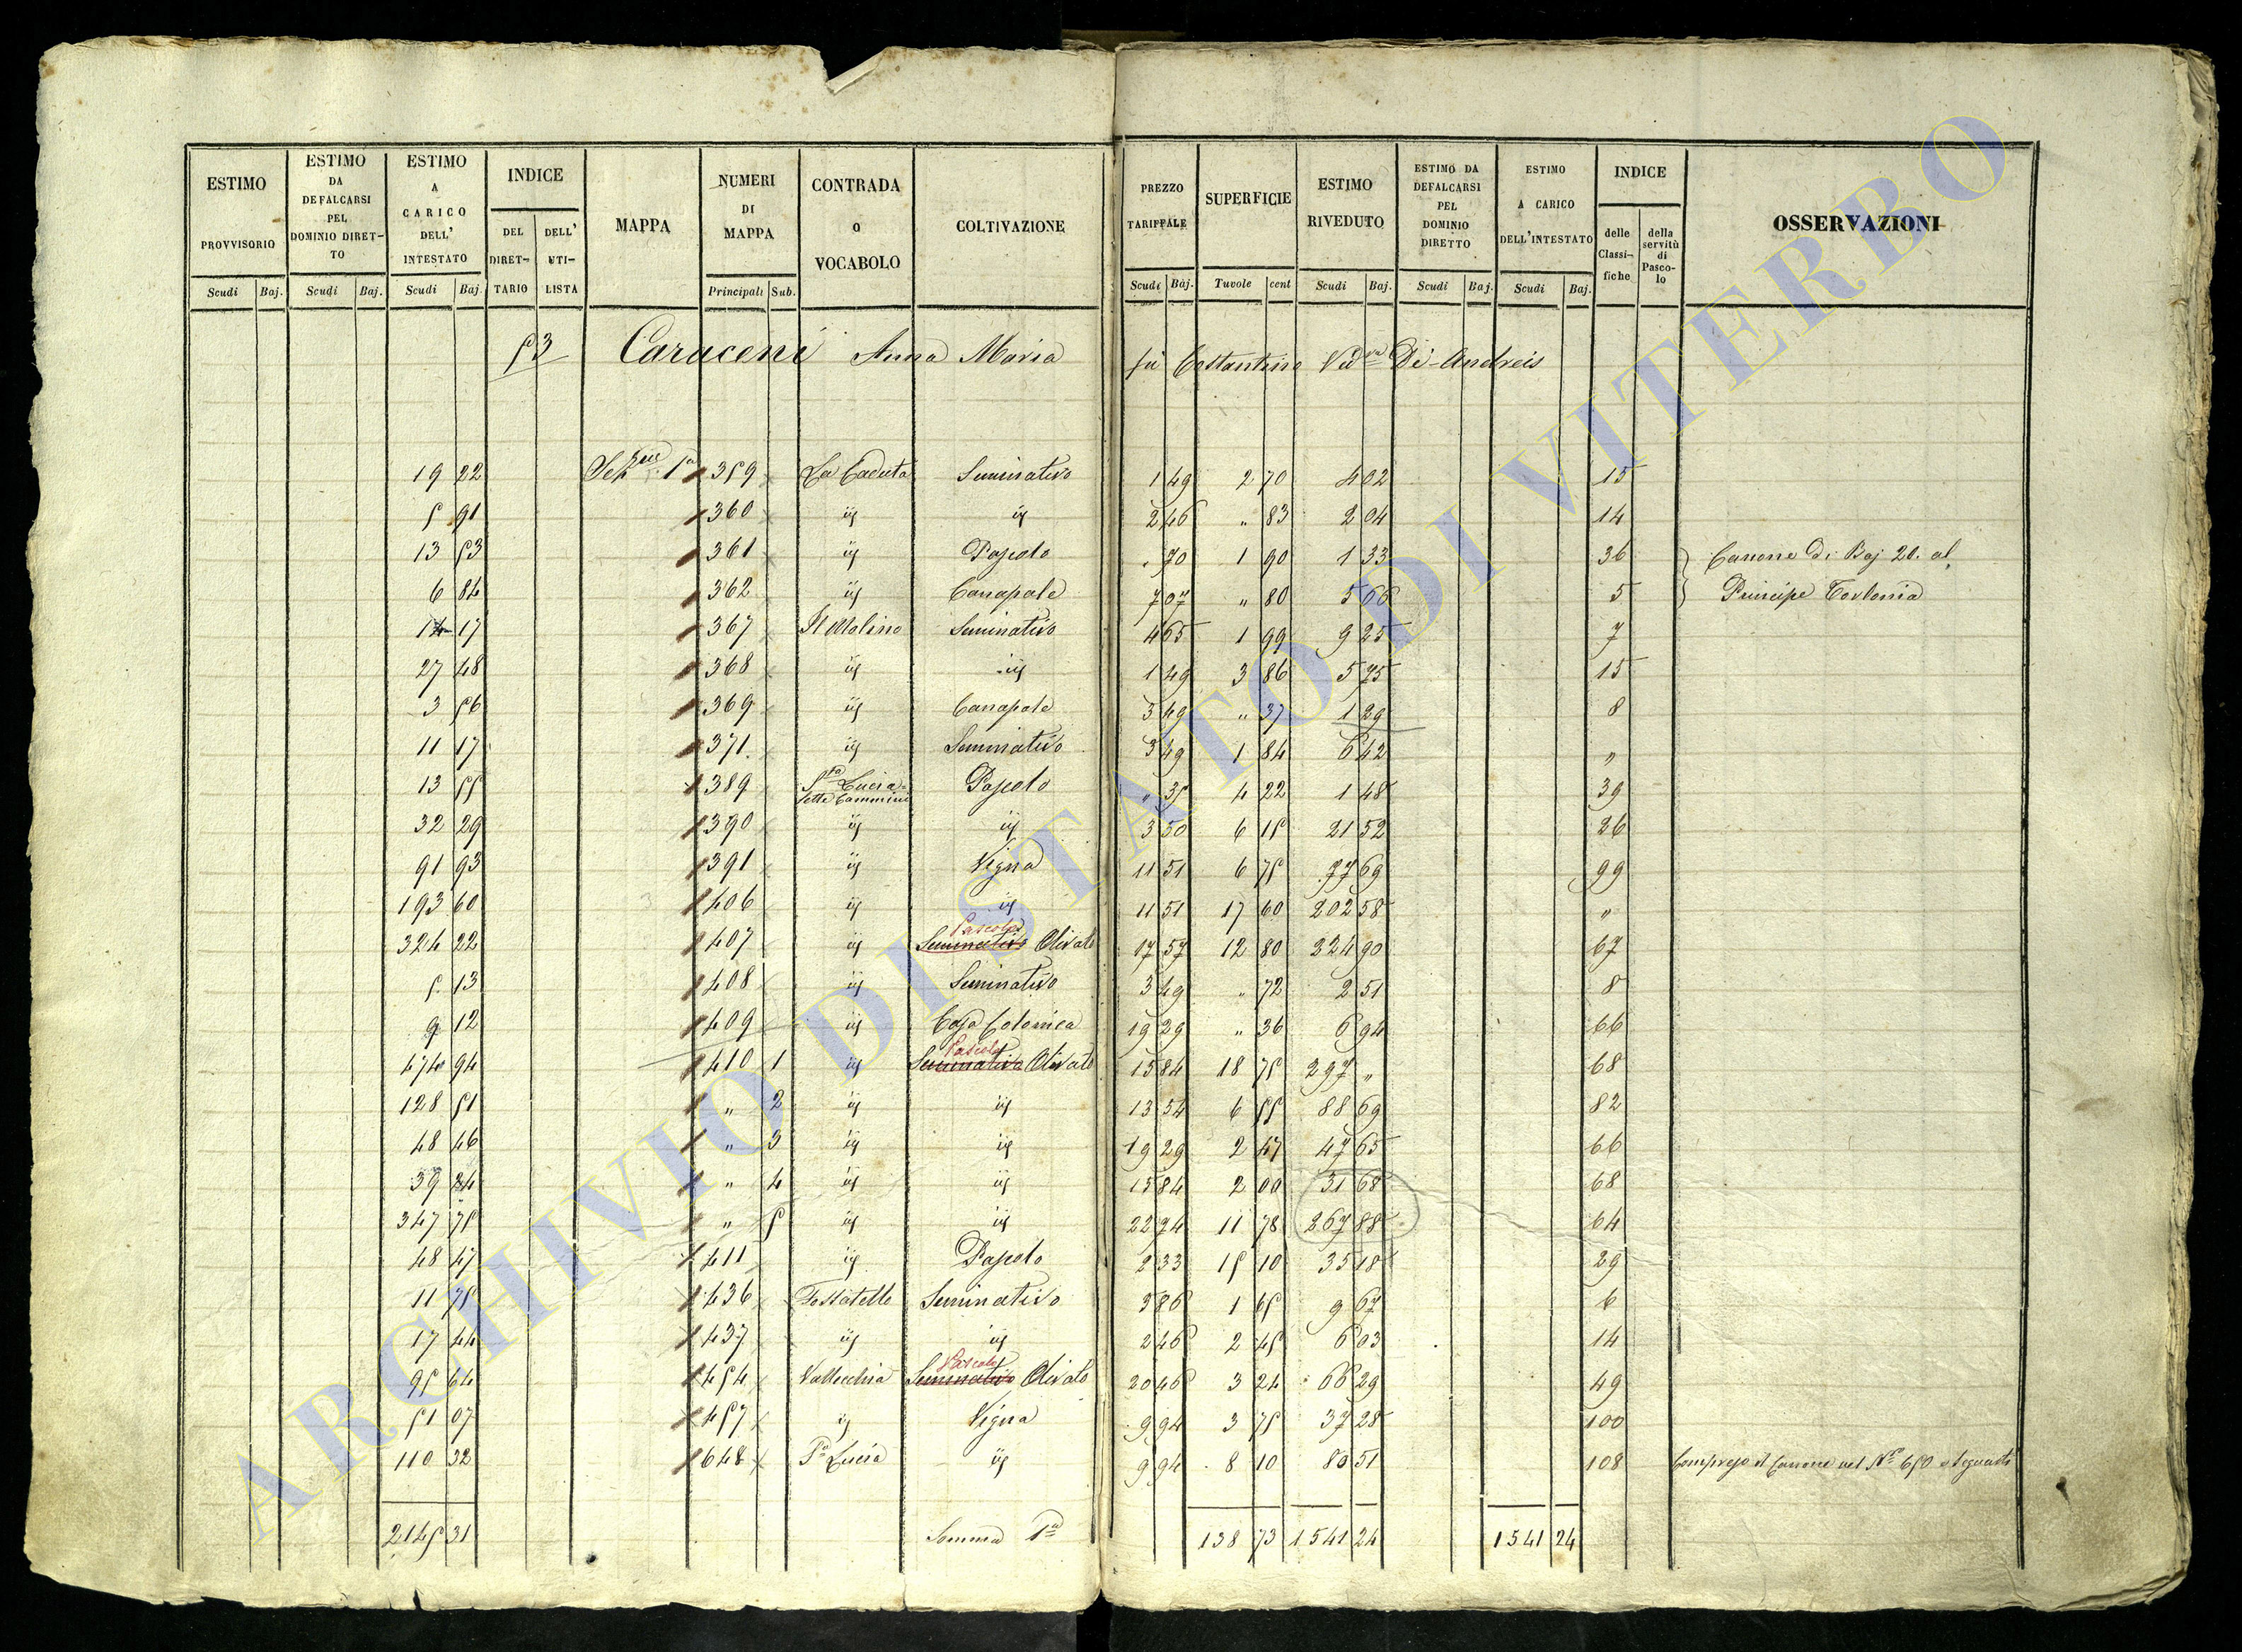 ESTIMO PROVVISORIO Scudi Baj.
ESTIMO DA DEFALCARSI PEL DOMINIO DIRET-TO Scudi Baj.
ESTIMO A CARICO DELL' INTESTATO Scudi Baj.
INDICE DEL DIRET-TARIO DELL' UTI-LISTA
MAPPA
NUMERI DI MAPPA Principali Sub.
CONTRADA O VOCABOLO
COLTIVAZIONE
PREZZO TARIFFALE Scudi Baj.
SUPERFICIE Tavole cent
ESTIMO RIVEDUTO Scudi Baj.
ESTIMO DA DEFALCARSI PEL DOMINIO DIRETTO Scudi Baj.
ESTIMO A CARICO DELL'INTESTATO Scudi Baj.
INDICE delle Classi-fiche della servitù di Pasco-lo
OSSERVAZIONI
53 Caraceni Anna Maria fu Costantino Ved.va De-Andreis
19 22 Sez.ne 1a 359 La Caduta Seminativo 1 49 2 70 4 02 15
5 91 360 iij iij 2 46 " 83 2 04 14
13 53 361 iij Pascolo . 70 1 90 1 33 36 Canone di Baj 20. al
6 84 362 iij Canapale 7 07 " 80 5 66 5 Principe Torlonia
17 367 Il Molino Seminativo 4 65 1 99 9 25 7
27 48 368 iij iij 1 49 3 86 5 75 15
3 56 369 iij Canapale 3 49 " 37 1 29 8
11 17 371 iij Seminativo 3 49 1 84 6 42 "
13 55 389 S.ta Lucia = Sette Cammini Pascolo " 35 4 22 1 48 39
32 29 390 iij iij 3 50 6 15 21 52 26
91 93 391 iij Vigna 11 51 6 75 77 69 99
193 60 406 iij iij 11 51 17 60 202 58 "
Pascolo
324 22 407 iij Seminativo Olivato 17 57 12 80 224 90 67
5 13 408 iij Seminativo 3 49 " 72 2 51 8
9 12 409 iij Casa Colonica 19 29 " 36 6 94 66
Pascolo
474 94 410 1 iij Seminativo Olivato 15 84 18 75 297 " 68
128 51 " 2 iij iij 13 54 6 55 88 69 82
48 46 " 3 iij iij 19 29 2 47 47 65 66
39 24 " 4 iij iij 15 84 2 00 31 68 68
347 75 " 5 iij iij 22 74 11 78 267 88 64
48 47 411 iij Pascolo 2 33 15 10 35 18 29
11 75 436 Fossatello Seminativo 5 86 1 65 9 67 6
17 44 437 iij iij 2 46 2 45 6 03 14
Pascolo
95 64 454 Vallecchia Seminativo Olivato 20 46 3 24 66 29 49
51 07 457 iij Vigna 9 94 3 75 37 28 100
110 32 648 S.a Lucia iij 9 94 8 10 80 51 108 Compreso il Canone nel N.ro 650 e seguenti
2145 31 Somma 1a 138 73 1541 24 1541 24
ARCHIVIO DI STATO DI VITERBO